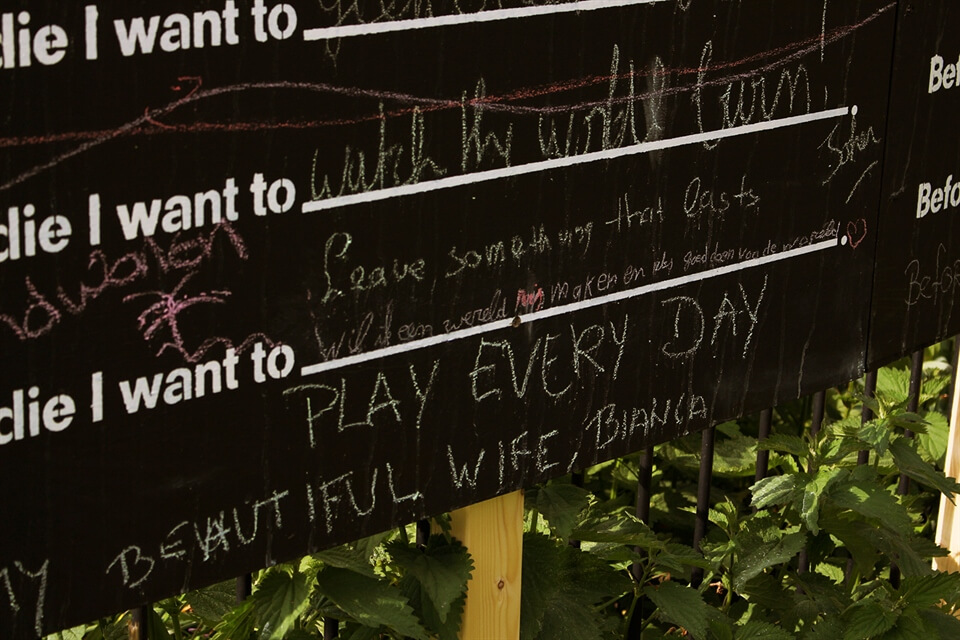 die I want to
Bef
watch my world turn.
die I want to
John
Befo
Leave something that lasts
Befor
Wil ik een wereld maken en iets goed doen voor de
die I want to
PLAY EVERY DAY
MY BEAUTIFUL WIFE, BIANCA